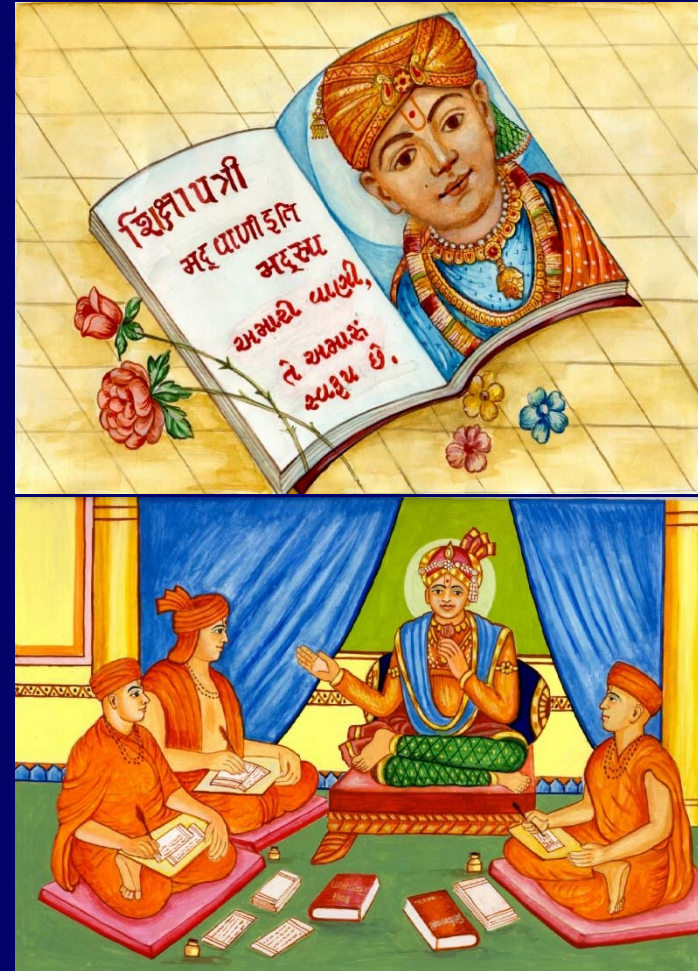 શિક્ષાપત્રી
મદ્ વાણી ઇતિ
મદ્‌રુપ
અમારી વાણી,
તે અમારું
સ્વરૂપ છે.